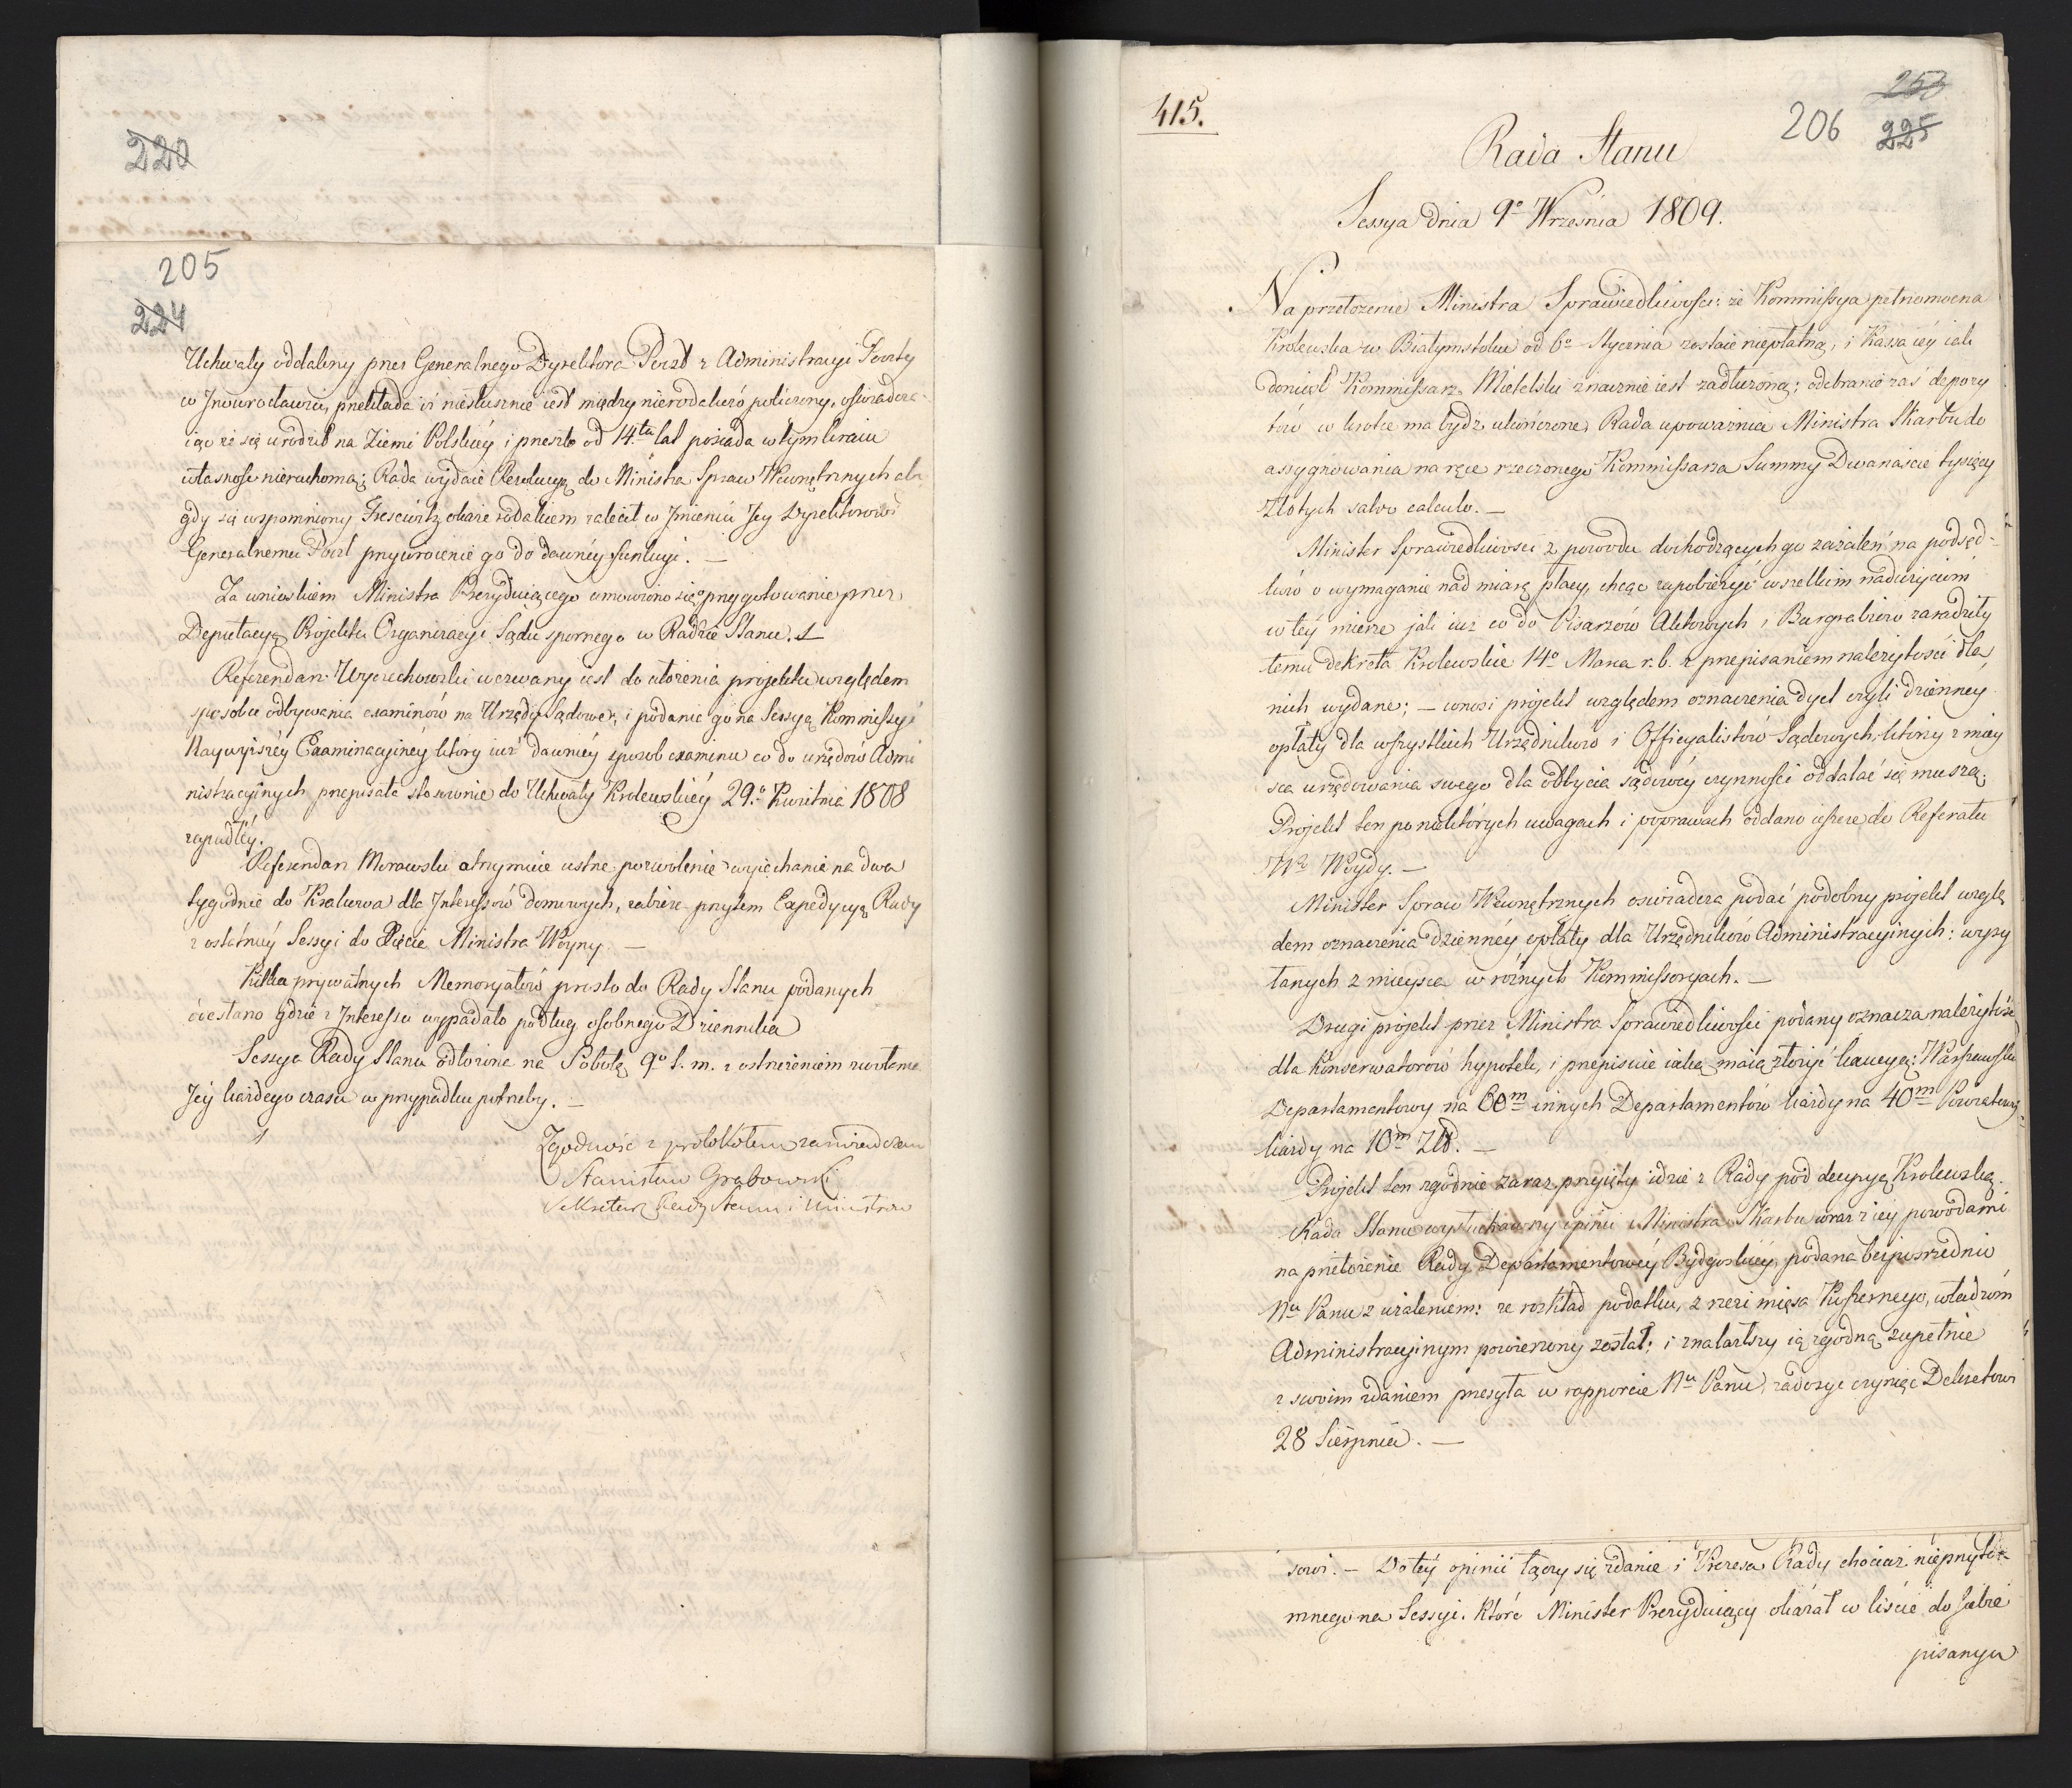 220
205
224
Uchwały oddalony przez Generalnego Dyrektora Poczt z Administracyi Poczty
w Inowrocławiu, przekłada iż niesłusznie iest między nierodaków policzony, oświadcza-
iąc że się urodził na Ziemi Polskiéy i przeszło od 14.ta lat posiada w tym kraiu
własność nieruchomą; Rada wydaie Rezolucyą do Ministra Spraw Wewnętrznych aby
gdy się wspomniony okaże rodakiem zalecił w Imieniu Jey Dyrektorowi
Generalnemu Poczt przywrócenie go do dawnéy funkcyi. —
Za wnioskiem Ministra Prezyduiącego umówiono się o przygotowanie przez
Deputacyą Projektu Organizacyi Sądu spornego w Radzie Stanu.
Referendarz Wyczechowski wezwany iest do ułożenia projektu względem
sposobu odbywania examinów na Urzędy Sądowe, i podanie go na Sessyą Kommissyi
Naywyższéy Examinacyinéy który iuż dawniéy sposob examinu co do urzędów Admi
nistracyinych przepisała stosownie do Uchwały Krolewskiéy 29.o Kwietnia 1808
zapadłéy.
Referendarz Morawski otrzymuie ustne pozwolenie wyiechania na dwa
tygodnie do Krakowa dla Interessów domowych, zabierze przytem Expedycyą Rady
z ostatniéy Sessyi do Xięcia Ministra Woyny. —
Kilka prywatnych Memoryałów prosto do Rady Stanu podanych
odesłano gdzie z Interessu wypadało podług osobnego Dziennika
Sessya Rady Stanu odłożona na Sobotę 9o t. m. z ostrzeżeniem zwołania
Jéy każdego czasu w przypadku potrzeby. —
Zgodność z protokółem zaświadczam
Stanisław Grabowski
Sekretarz Rady Stanu i Ministrów
415.
253
206 225
Rada Stanu
Sessya dnia 9o Września 1809.
Na przełożenie Ministra Sprawiedliwości: że Kommissya pełnomocna
Krolewska w Białymstoku od 6o Stycznia zostaie niepłatną, i Kassa iéy iak
doniosł Kommissarz Mielelski znacznie iest zadłużoną; odebranie zaś depozy
tów w krotce ma bydz ukończone, Rada upoważnia Ministra Skarbu do
assygnowania na ręce rzeczonego Kommissarza Summy Dwanaście tysięcy
Złotych salvo calculo. —
Minister Sprawiedliwości z powodu dochodzących go zażaleń na podsęd-
ków o wymaganie nad miarę płacy, chcąc zapobieżyć wszelkim nadużyciom
w téy mierze jak iuż co do Pisarzów Aktowych i Burgrabiów zaradziły
temu Dekreta Krolewskie 14o Marca r. b. z przepisaniem należytości dla
nich wydane; — wnosi projekt względem oznaczenia dyet czyli dzienney
opłaty dla wszystkich Urzędników i Officyalistów Sądowych, którzy z miey
sca urzędowania swego dla odbycia sądowéy czynności oddalać się muszą.
Projekt ten po niektórych uwagach i poprawach oddano ieszcze do Referatu
Wo Woydy. —
Minister Spraw Wewnętrznych oświadcza podać podobny projekt wzglę
dem oznaczenia dziennéy opłaty dla Urzędników Administracyinych: wysy
łanych z mieysca w różnych Kommissoryach. —
Drugi projekt przez Ministra Sprawiedliwości podany oznacza należytość
dla Konserwatorów hypotek, i przepisuie iaką maią złożyć kaucyą: Warszawski
Departamentowy na 60m innych Departamentów każdy na 40m Powiatowy
każdy na 10m Złł. —
Projekt ten zgodnie zaraz przyięty idzie z Rady pod decyzyą Krolewską.
Rada Stanu wysłuchawszy opinii Ministra Skarbu wraz z iéy powodami
na przełożenie Rady Departamentowéy Bydgoskiéy, podana bezpośrednio
Nu Panu z użaleniem: że rozkład podatku, z rzezi mięsa Koszernego, władzom
Administracyinym powierzony został; i znalazłszy ią zgodną zupełnie
z swoim zdaniem przesyła w rapporcie Nu Panu, zadosyć czyniąc Dekretowi
28 Sierpnia. —
sowi. — Do téy opinii łączy się zdanie i Prezesa Rady chociaż nieprzyto-
mnego na Sessyi. Które Minister Prezyduiący okazał w liście do Siebie
pisanym